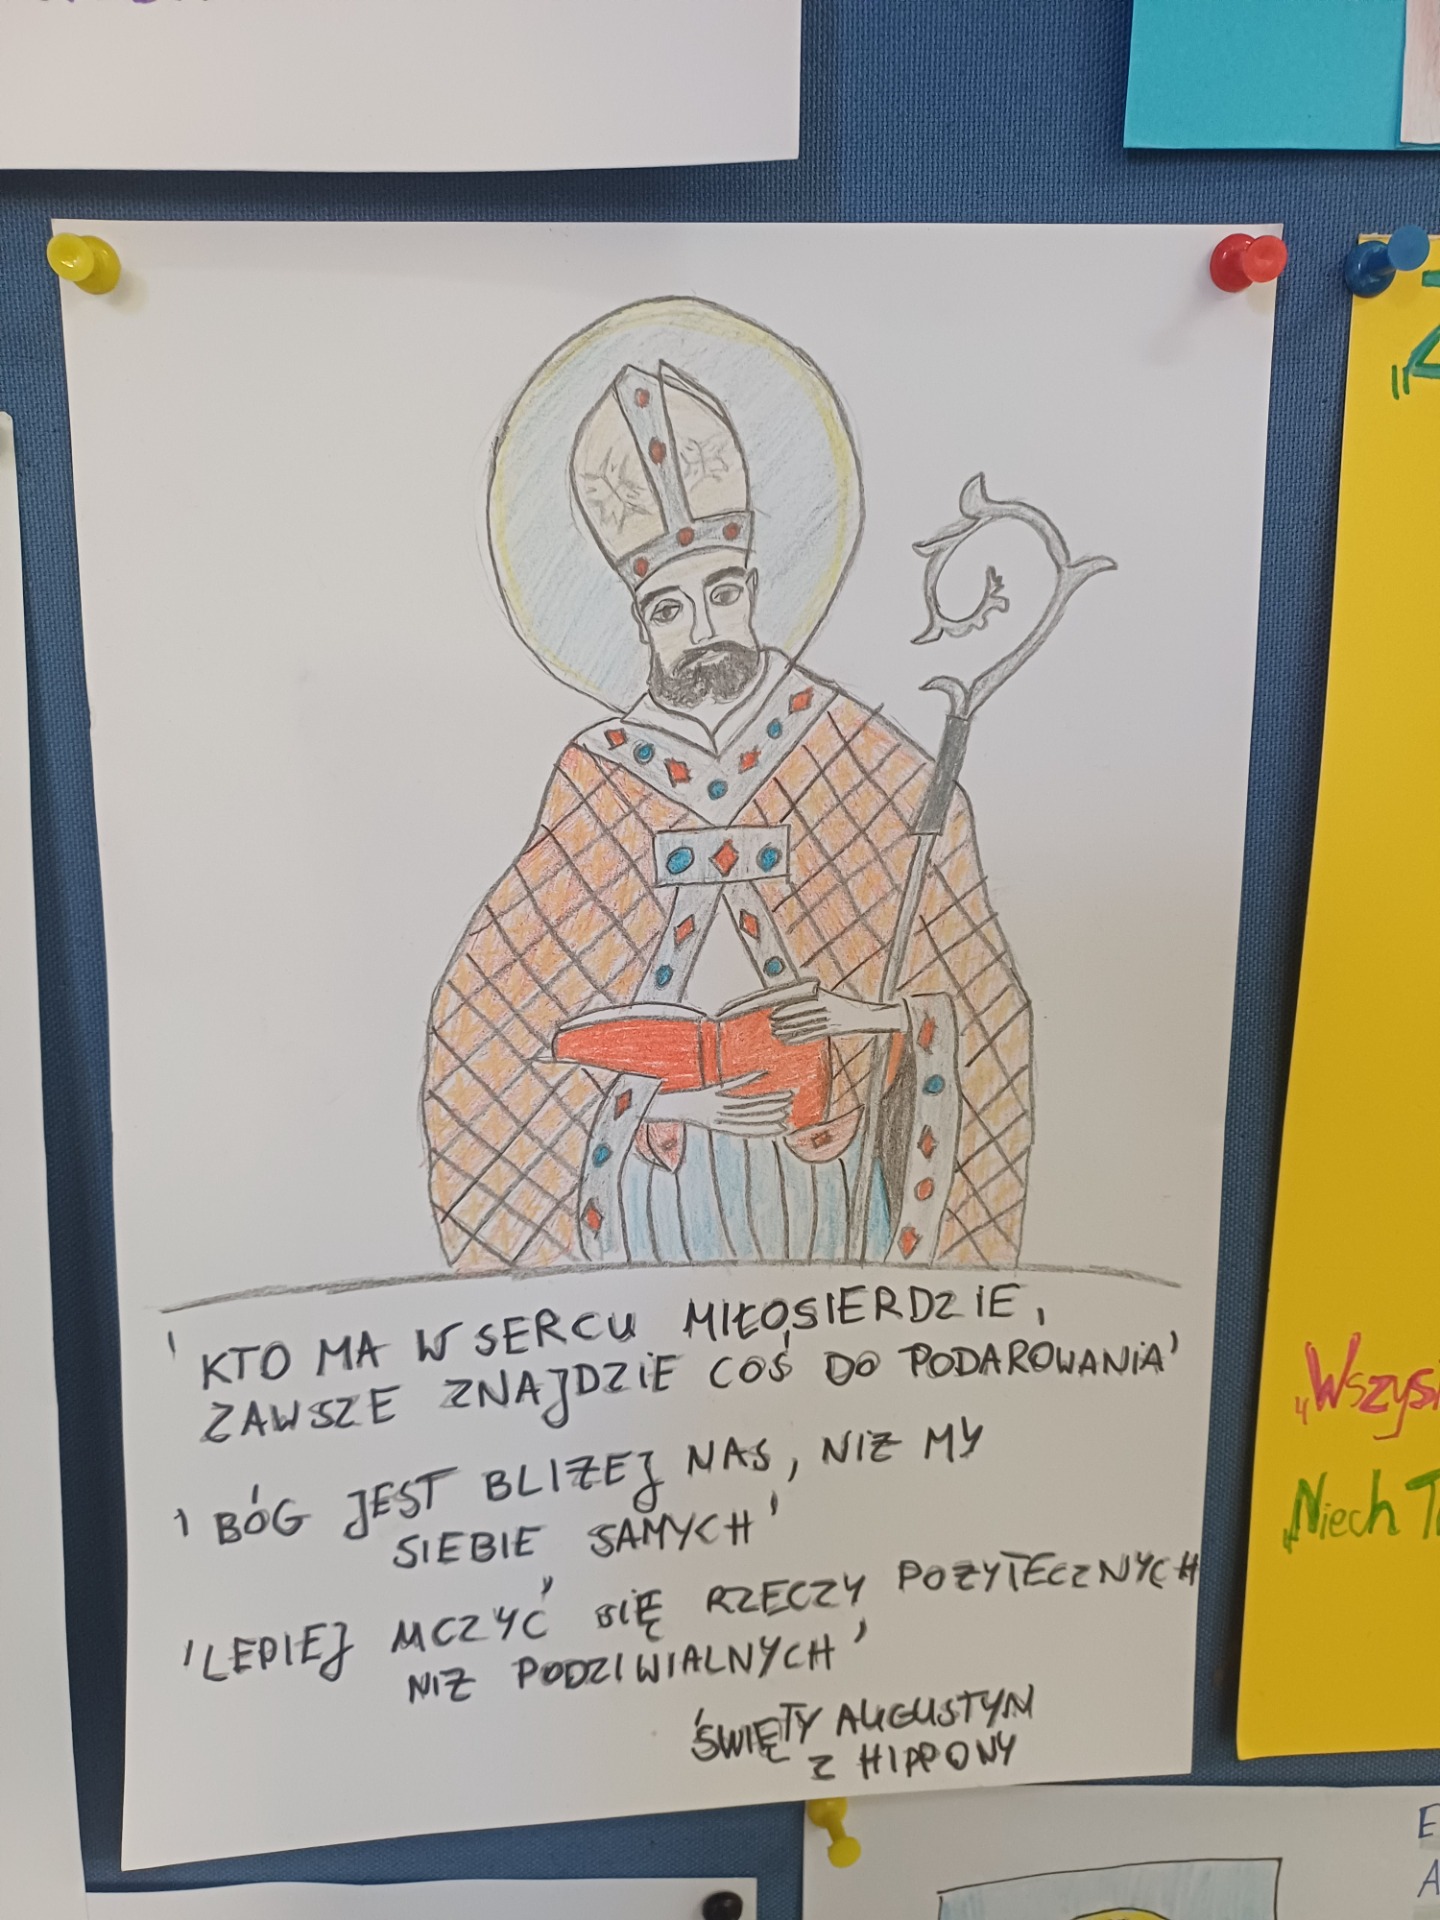 'KTO MA W SERCU MIŁOSIERDZIE,
ZAWSZE ZNAJDZIE COŚ DO PODAROWANIA'
'BÓG JEST BLIŻEJ NAS, NIŻ MY
SIEBIE SAMYCH'
'LEPIEJ UCZYĆ SIĘ RZECZY POŻYTECZNYCH
NIŻ PODZIWIALNYCH'
ŚWIĘTY AUGUSTYN
Z HIPPONY
„Niech